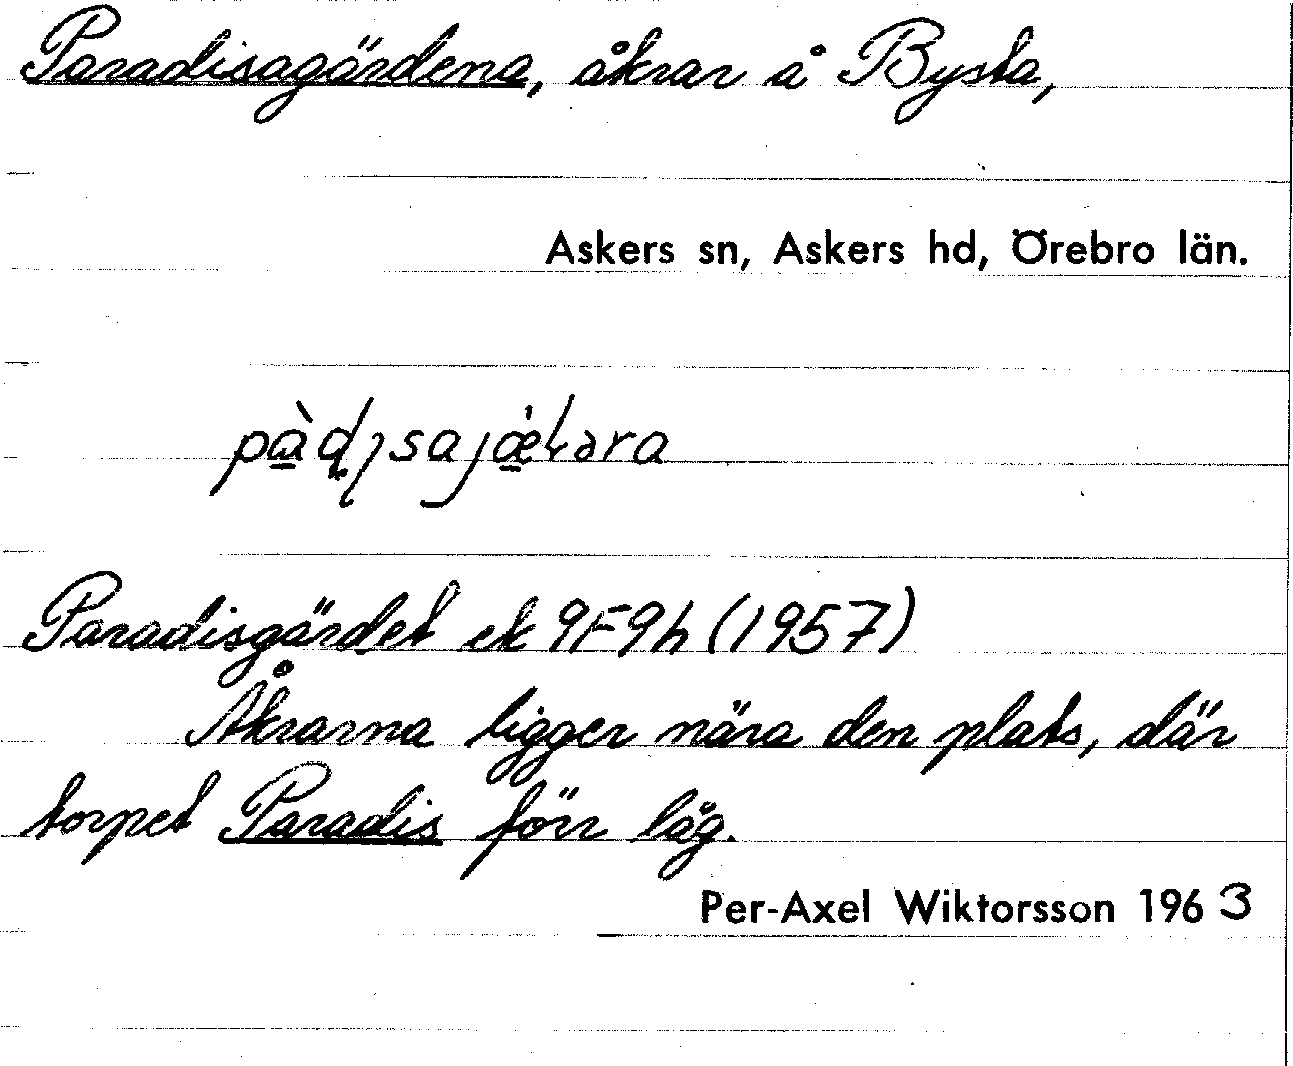 Paradisagärdena, åkrar å Bysta,
Askers sn, Askers hd, Örebro län.
Paradisgärdet ek 9F9h (1957)
Åkrarna ligger nära den plats, där
torpet Paradis förr låg.
Per-Axel Wiktorsson 1963